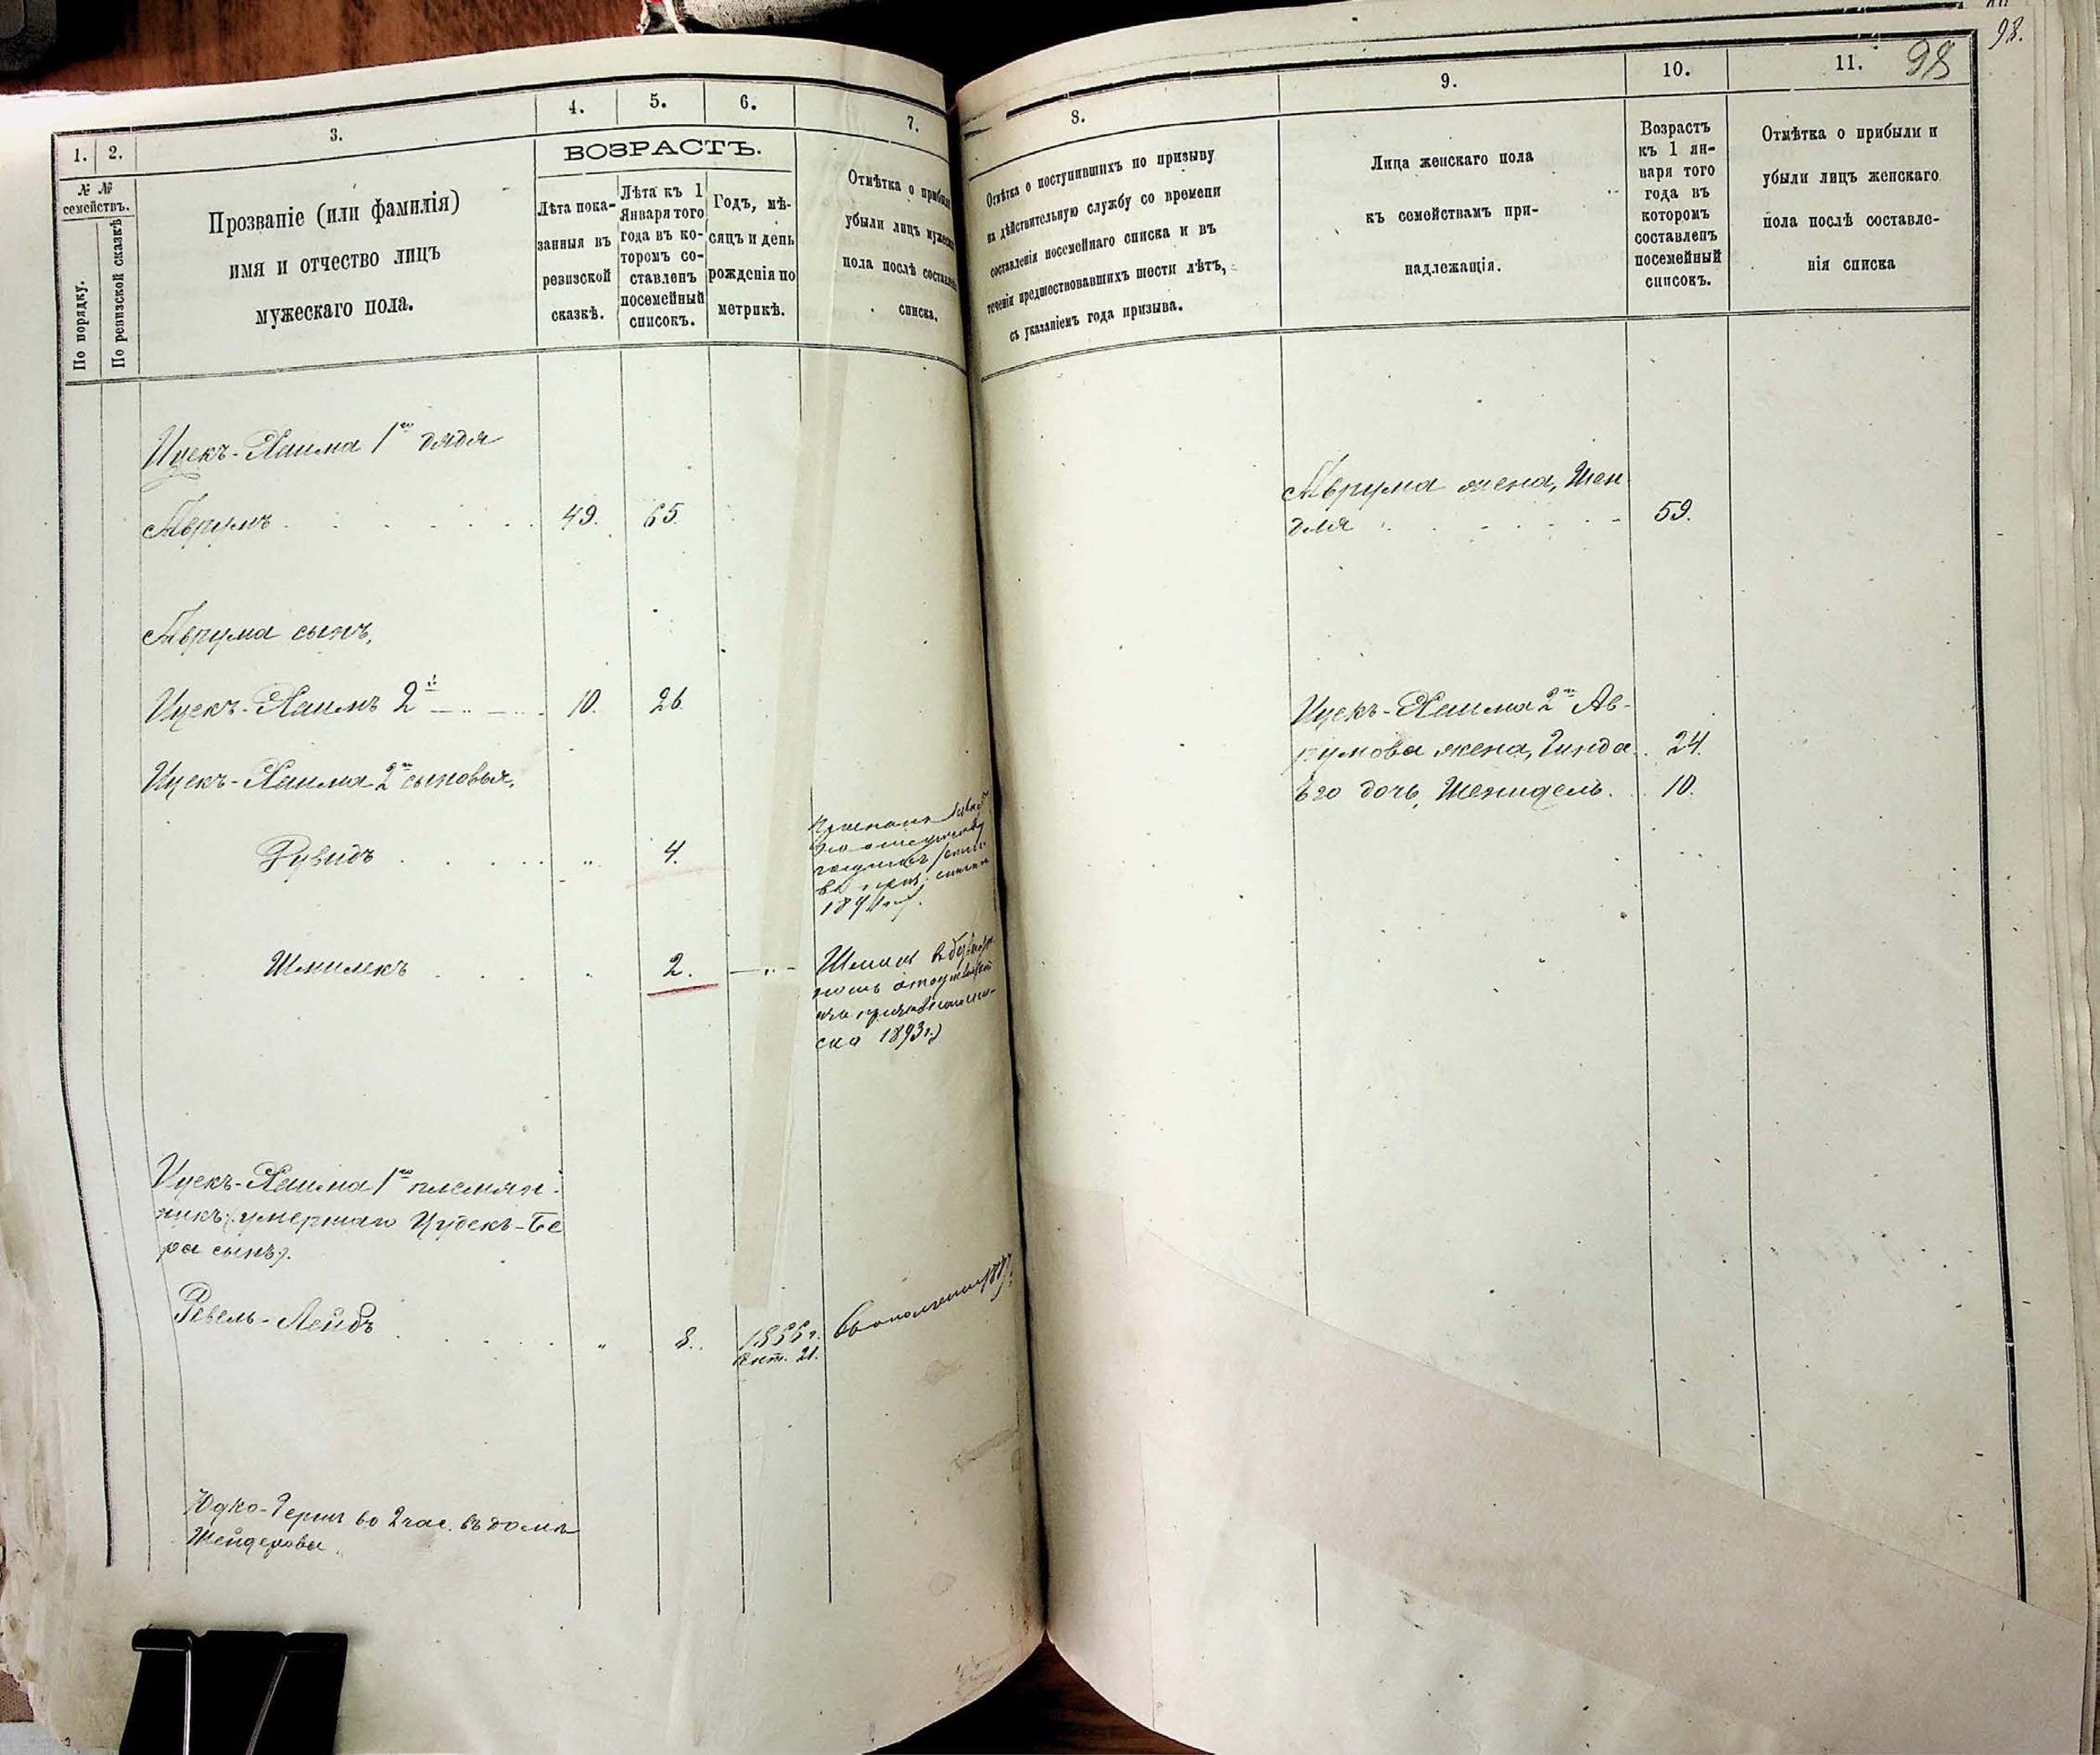 98.
98
1.
2.
3.
4.
5.
6.
7.
№ №
семействъ.
По порядку.
По ревизской сказкѣ
Прозваніе (или фамилія)
имя и отчество лицъ
мужескаго пола.
ВОЗРАСТЪ.
Лѣта пока-
занныя въ
ревизской
сказкѣ.
Лѣта къ 1
Января того
года въ ко-
торомъ со-
ставленъ
посемейный
списокъ.
Годъ, мѣ-
сяцъ и день
рожденія по
метрикѣ.
Отмѣтка о прибыли
убыли лицъ
пола послѣ
списка.
Ицекъ-Хаима 1го дядя
Аврумъ 49. 65.
Аврума сынъ,
Ицекъ-Хаимъ 2й 10. 26.
Ицекъ-Хаима 2го сыновья,
Рувидъ „ 4.
1894 г.
Шмилекъ „ 2. „
1893 г.)
Ицекъ-Хаима 1го племян-
никъ (умершаго Иудекъ-Бе
ра сынъ).
Ревель-Лейбъ „ 8. 1866 г.
21.
Юдко-Герш во 2 час. въ домѣ
8.
9.
10.
11.
Отмѣтка о поступившихъ по призыву
на дѣйствительную службу со времени
составленія посемейнаго списка и въ
теченіи предшествовавшихъ шести лѣтъ,
съ указаніемъ года призыва.
Лица женскаго пола
къ семействамъ при-
надлежащія.
Возрастъ
къ 1 ян-
варя того
года въ
которомъ
составленъ
посемейный
списокъ.
Отмѣтка о прибыли и
убыли лицъ женскаго
пола послѣ составле-
нія списка
Аврума жена, Шен
для 59.
Ицекъ-Хаима 2го Ав-
румова жена, Гинда 24.
Его дочь, Шеницель 10.